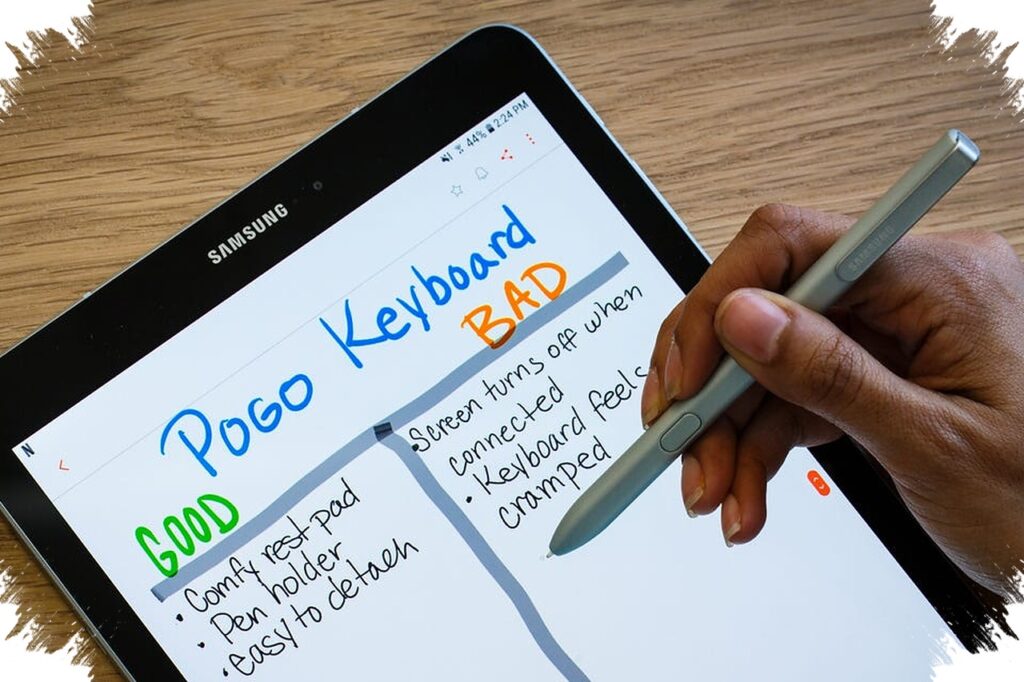 SAMSUNG
44% 2:24 PM
N
Pogo Keyboard
GOOD
BAD
• Comfy rest pad
• Pen holder
• easy to detach
• Screen turns off when
connected
• Keyboard feels
cramped
SAMSUNG